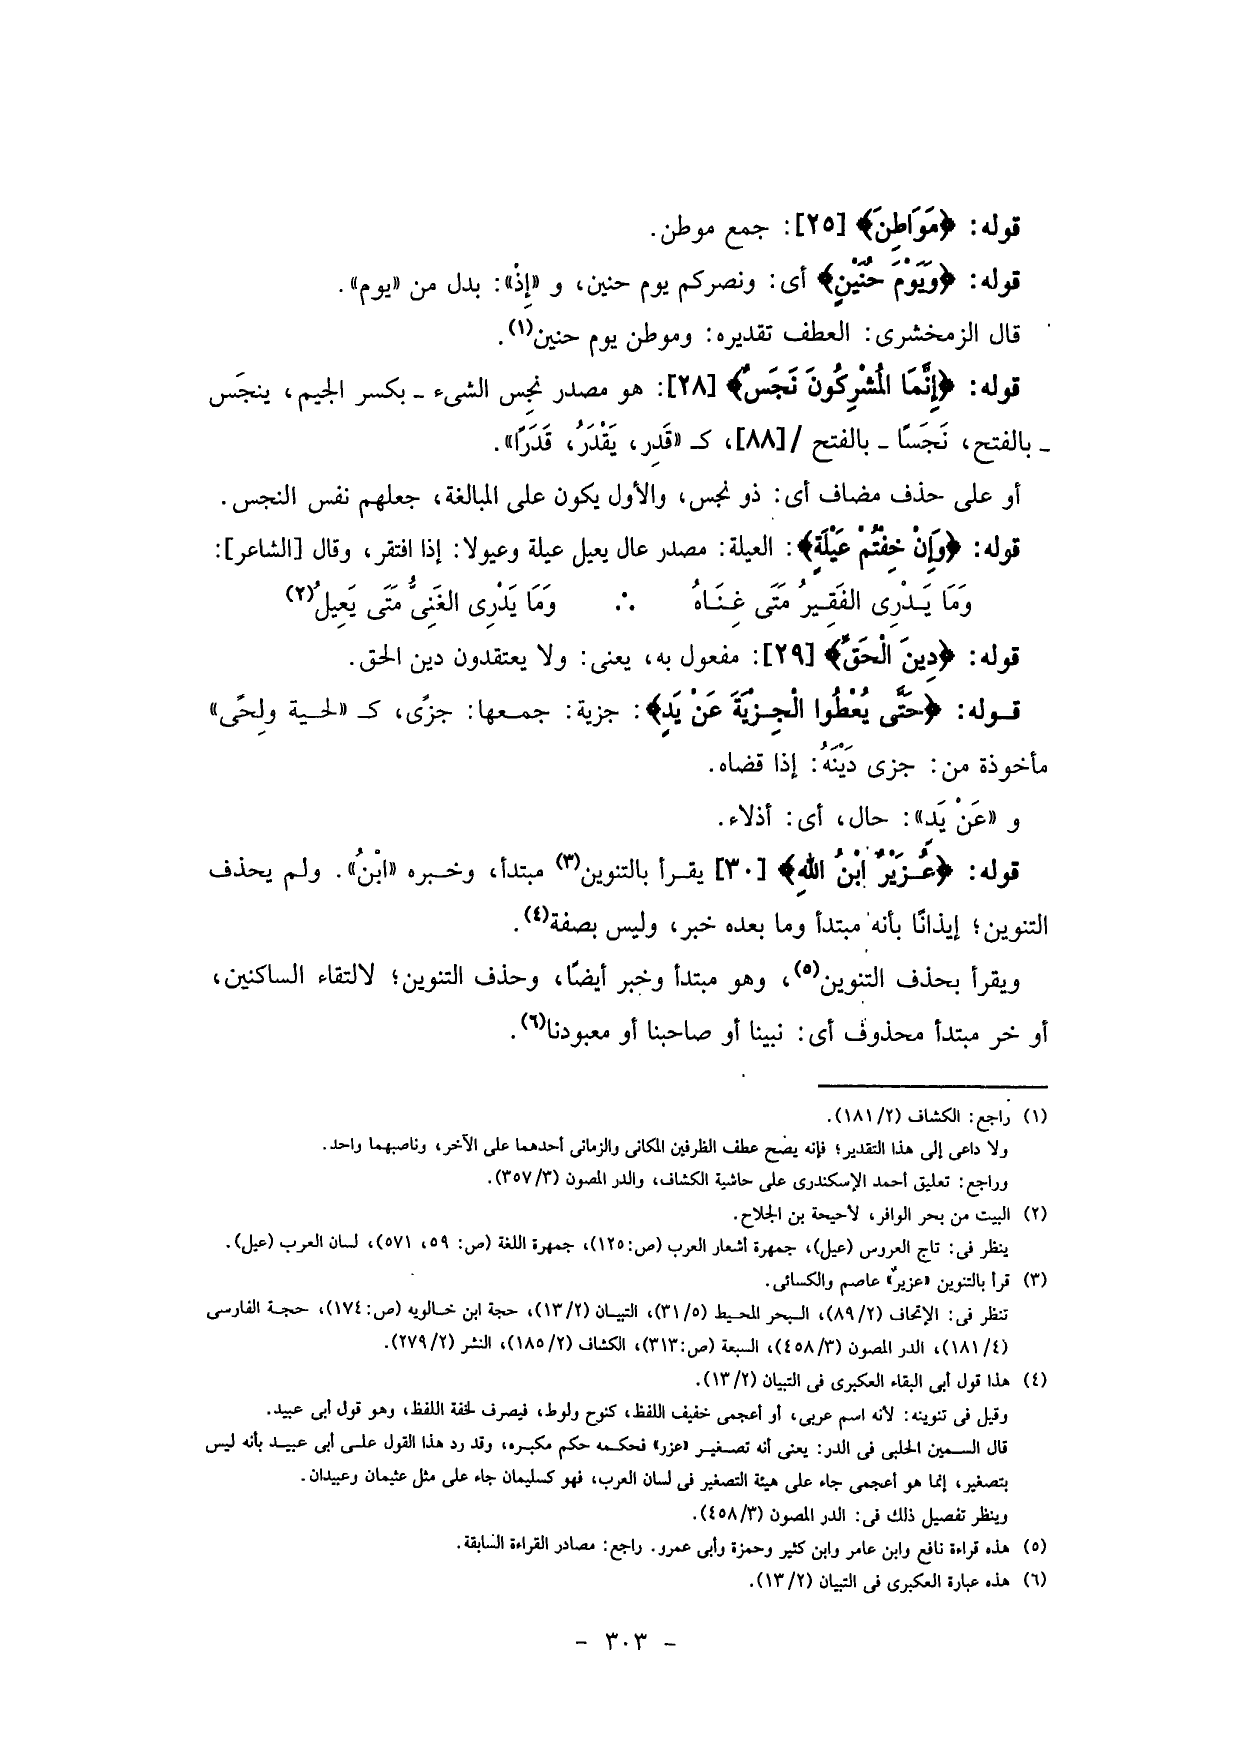 قوله: ﴿مَوَاطِنَ﴾ [٢٥]: جمع موطن.
قوله: ﴿وَيَوْمَ حُنَيْنٍ﴾ أى: ونصركم يوم حنين، و «إِذْ»: بدل من «يوم».
قال الزمخشرى: العطف تقديره: وموطن يوم حنين(١).
قوله: ﴿إِنَّمَا الْمُشْرِكُونَ نَجَسٌ﴾ [٢٨]: هو مصدر نجِس الشىء ـ بكسر الجيم، ينجَس
ـ بالفتح، نَجَسًا ـ بالفتح /[٨٨]، كـ «قَدِر، يَقْدَرُ، قَدَرًا».
أو على حذف مضاف أى: ذو نجس، والأول يكون على المبالغة، جعلهم نفس النجس.
قوله: ﴿وَإِنْ خِفْتُمْ عَيْلَةً﴾: العيلة: مصدر عال يعيل عيلة وعيولا: إذا افتقر، وقال [الشاعر]:
وَمَا يَـدْرِى الفَقِـيرُ مَتَى غِـنَـاهُ ∴ وَمَا يَدْرِى الغَنِىُّ مَتَى يَعِيلُ(٢)
قوله: ﴿دِينَ الْحَقِّ﴾ [٢٩]: مفعول به، يعنى: ولا يعتقدون دين الحق.
قـوله: ﴿حَتَّى يُعْطُوا الْجِـزْيَةَ عَنْ يَدٍ﴾: جزية: جمـعها: جزًى، كـ «لحـية ولِحًى»
مأخوذة من: جزى دَيْنَهُ: إذا قضاه.
و «عَنْ يَدٍ»: حال، أى: أذلاء.
قوله: ﴿عُـزَيْرٌ ابْنُ اللهِ﴾ [٣٠] يقـرأ بالتنوين(٣) مبتدأ، وخـبره «ابْنُ». ولم يحذف
التنوين؛ إيذانًا بأنه مبتدأ وما بعده خبر، وليس بصفة(٤).
ويقرأ بحذف التنوين(٥)، وهو مبتدأ وخبر أيضًا، وحذف التنوين؛ لالتقاء الساكنين،
أو خر مبتدأ محذوف أى: نبينا أو صاحبنا أو معبودنا(٦).
(١) راجع: الكشاف (١٨١/٢).
ولا داعى إلى هذا التقدير؛ فإنه يصح عطف الظرفين المكانى والزمانى أحدهما على الآخر، وناصبهما واحد.
وراجع: تعليق أحمد الإسكندرى على حاشية الكشاف، والدر المصون (٣٥٧/٣).
(٢) البيت من بحر الوافر، لأحيحة بن الجلاح.
ينظر فى: تاج العروس (عيل)، جمهرة أشعار العرب (ص:١٢٥)، جمهرة اللغة (ص: ٥٩، ٥٧١)، لسان العرب (عيل).
(٣) قرأ بالتنوين «عزيرٌ» عاصم والكسائى.
تنظر فى: الإتحاف (٨٩/٢)، البـحر المحـيط (٣١/٥)، التبيـان (١٣/٢)، حجة ابن خـالويه (ص:١٧٤)، حجـة الفارسى
(١٨١/٤)، الدر المصون (٤٥٨/٣)، السبعة (ص:٣١٣)، الكشاف (١٨٥/٢)، النشر (٢٧٩/٢).
(٤) هذا قول أبى البقاء العكبرى فى التبيان (١٣/٢).
وقيل فى تنوينه: لأنه اسم عربى، أو أعجمى خفيف اللفظ، كنوح ولوط، فيصرف لخفة اللفظ، وهو قول أبى عبيد.
قال السـمين الحلبى فى الدر: يعنى أنه تصـغـير «عزر» فحكمـه حكم مكبـره، وقد رد هذا القول علـى أبى عبيـد بأنه ليس
بتصغير، إنما هو أعجمى جاء على هيئة التصغير فى لسان العرب، فهو كسليمان جاء على مثل عثيمان وعبيدان.
وينظر تفصيل ذلك فى: الدر المصون (٤٥٨/٣).
(٥) هذه قراءة نافع وابن عامر وابن كثير وحمزة وأبى عمرو. راجع: مصادر القراءة السابقة.
(٦) هذه عبارة العكبرى فى التبيان (١٣/٢).
- ٣٠٣ -